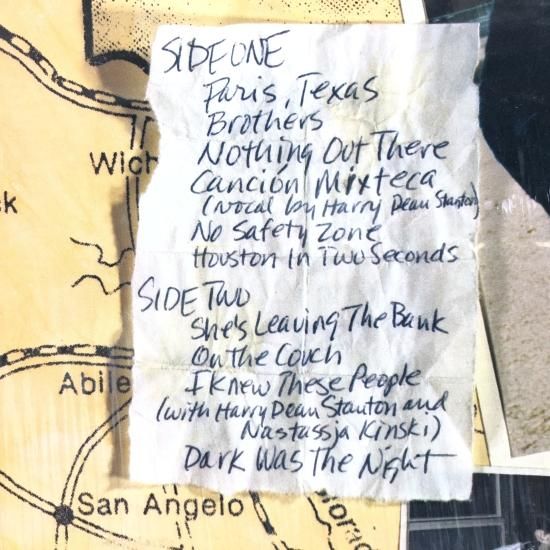 SIDE ONE
Paris, Texas
Brothers
Nothing Out There
Canción Mixteca
(vocal by Harry Dean Stanton)
No Safety Zone
Houston In Two Seconds
SIDE TWO
She's Leaving The Bank
On the Couch
I Knew These People
(with Harry Dean Stanton and
Nastassja Kinski)
Dark Was The Night
Wich
k
Abile
San Angelo
orac